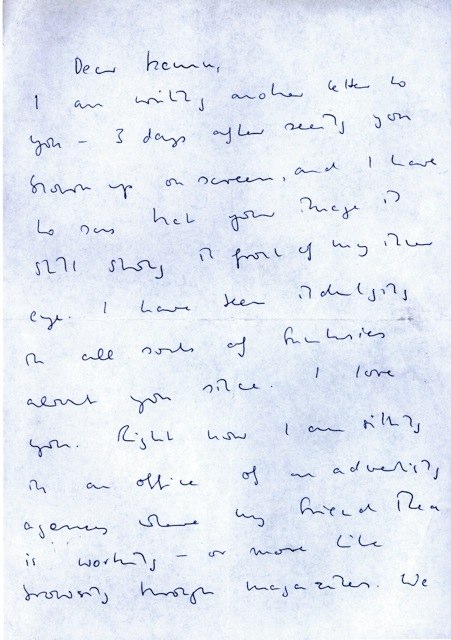 Dear
I am writing another letter to
you – 3 days after seeing you
blown up on screen, and I have
to say that your image is
still strong in front of my inner
eye. I have been indulging
in all sorts of fantasies
about you since. I love
you. Right now I am sitting
in an office of an advertising
agency where my friend Thea
is working – or more like
browsing through magazines. We